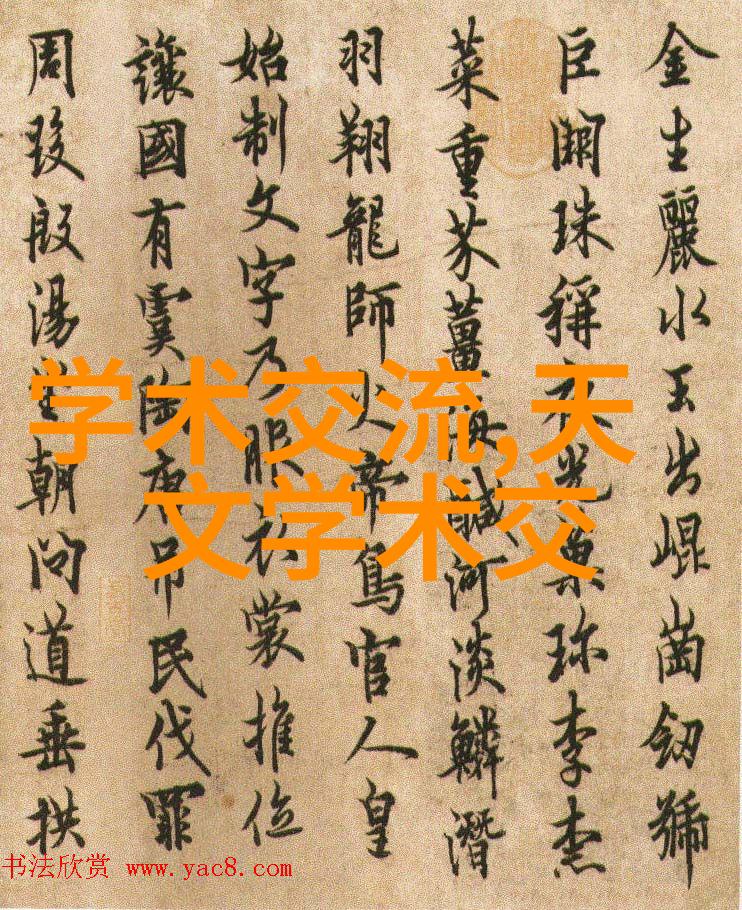 金生麗水玉出崐崗劒號
巨闕珠稱夜光菓珍李柰
菜重芥薑海鹹河淡鱗潛
羽翔龍師火帝鳥官人皇
始制文字乃服衣裳推位
讓國有虞陶唐吊民伐罪
周發殷湯坐朝問道垂拱
学术交流,天
文学术交
书法欣赏 www.yac8.com